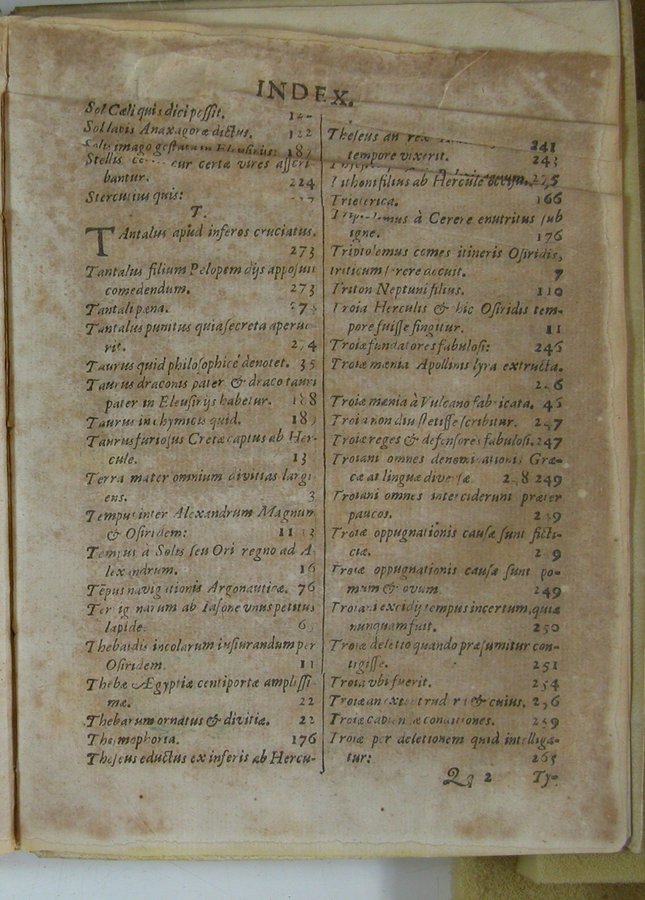 INDEX.
Sol Cæli quis dici possit.
Sol lapis Anaxagoræ dictus. 122
Solis imago gestata in Eleusiniis: 187
Stellis cur certæ vires asseri-
bantur. 224
Sterculius quis:
T.
TAntalus apud inferos cruciatus.
273
Tantalus filium Pelopem dijs apposuit
comedendum. 273
Tantali pæna. 273
Tantalus punitus quia secreta aperue-
rit. 274
Taurus quid philosophicè denotet. 35
Taurus draconis pater & draco tauri
pater in Eleusirijs habetur. 188
Taurus in chymicis quid. 189
Taurus furiosus Cretæ captus ab Her-
cule. 13
Terra mater omnium divitias largi-
ens. 3
Tempus inter Alexandrum Magnum
& Osiridem:
Tempus à Solis seu Ori regno ad A-
lexandrum. 16
Tēpus navigationis Argonauticæ. 76
Ter ig narum ab Iasone vnus petitus
lapide.
Thebaidis incolarum insiurandum per
Osiridem. 11
Thebæ Ægyptiæ centiportæ amplissi-
mæ. 22
Thebarum ornatus & divitiæ. 22
Thesmophoria. 176
Theseus eductus ex inferis ab Hercu-
Theseus an rex 241
tempore vixerit. 243
Tithoni filius ab Hercule occisus. 275
Trieterica. 166
à Cerere enutritus sub
igne. 176
Triptolemus comes itineris Osiridis,
triticum serere docuit. 7
Triton Neptuni filius. 110
Troia Herculis & hic Osiridis tem-
pore fuisse fingitur. 11
Troiæ fundatores fabulosi: 246
Troiæ mænia Apollinis lyra extructa.
246
Troiæ mænia à Vulcano fabricata. 46
Troia non diu stetisse scribitur. 247
Troiæ reges & defensores fabulosi. 247
Troiani omnes denominationis Græ-
cæ at linguæ diversæ. 248 249
Troiani omnes interciderunt præter
paucos. 249
Troiæ oppugnationis causæ sunt ficti-
ciæ. 249
Troiæ oppugnationis causæ sunt po-
mum & ovum. 249
Troiani excidij tempus incertum, quia
nunquam fuit. 250
Troiæ deletio quando præsumitur con-
tigisse. 251
Troia vbi fuerit. 254
Troiæ an & cuius. 256
Troiæ conditiones. 259
Troiæ per deletionem quid intelliga-
tur: 263
Qq 2 Ty-